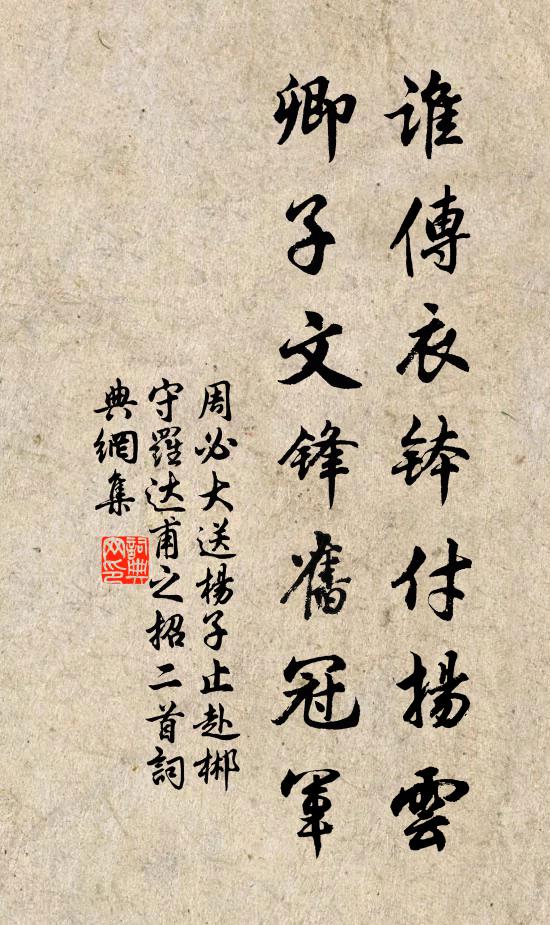 誰傳衣鉢付揚雲
卿子文鋒舊冠軍
周必大送楊子止赴郴
守羅达甫之招二首詞
典網集
詞典網印